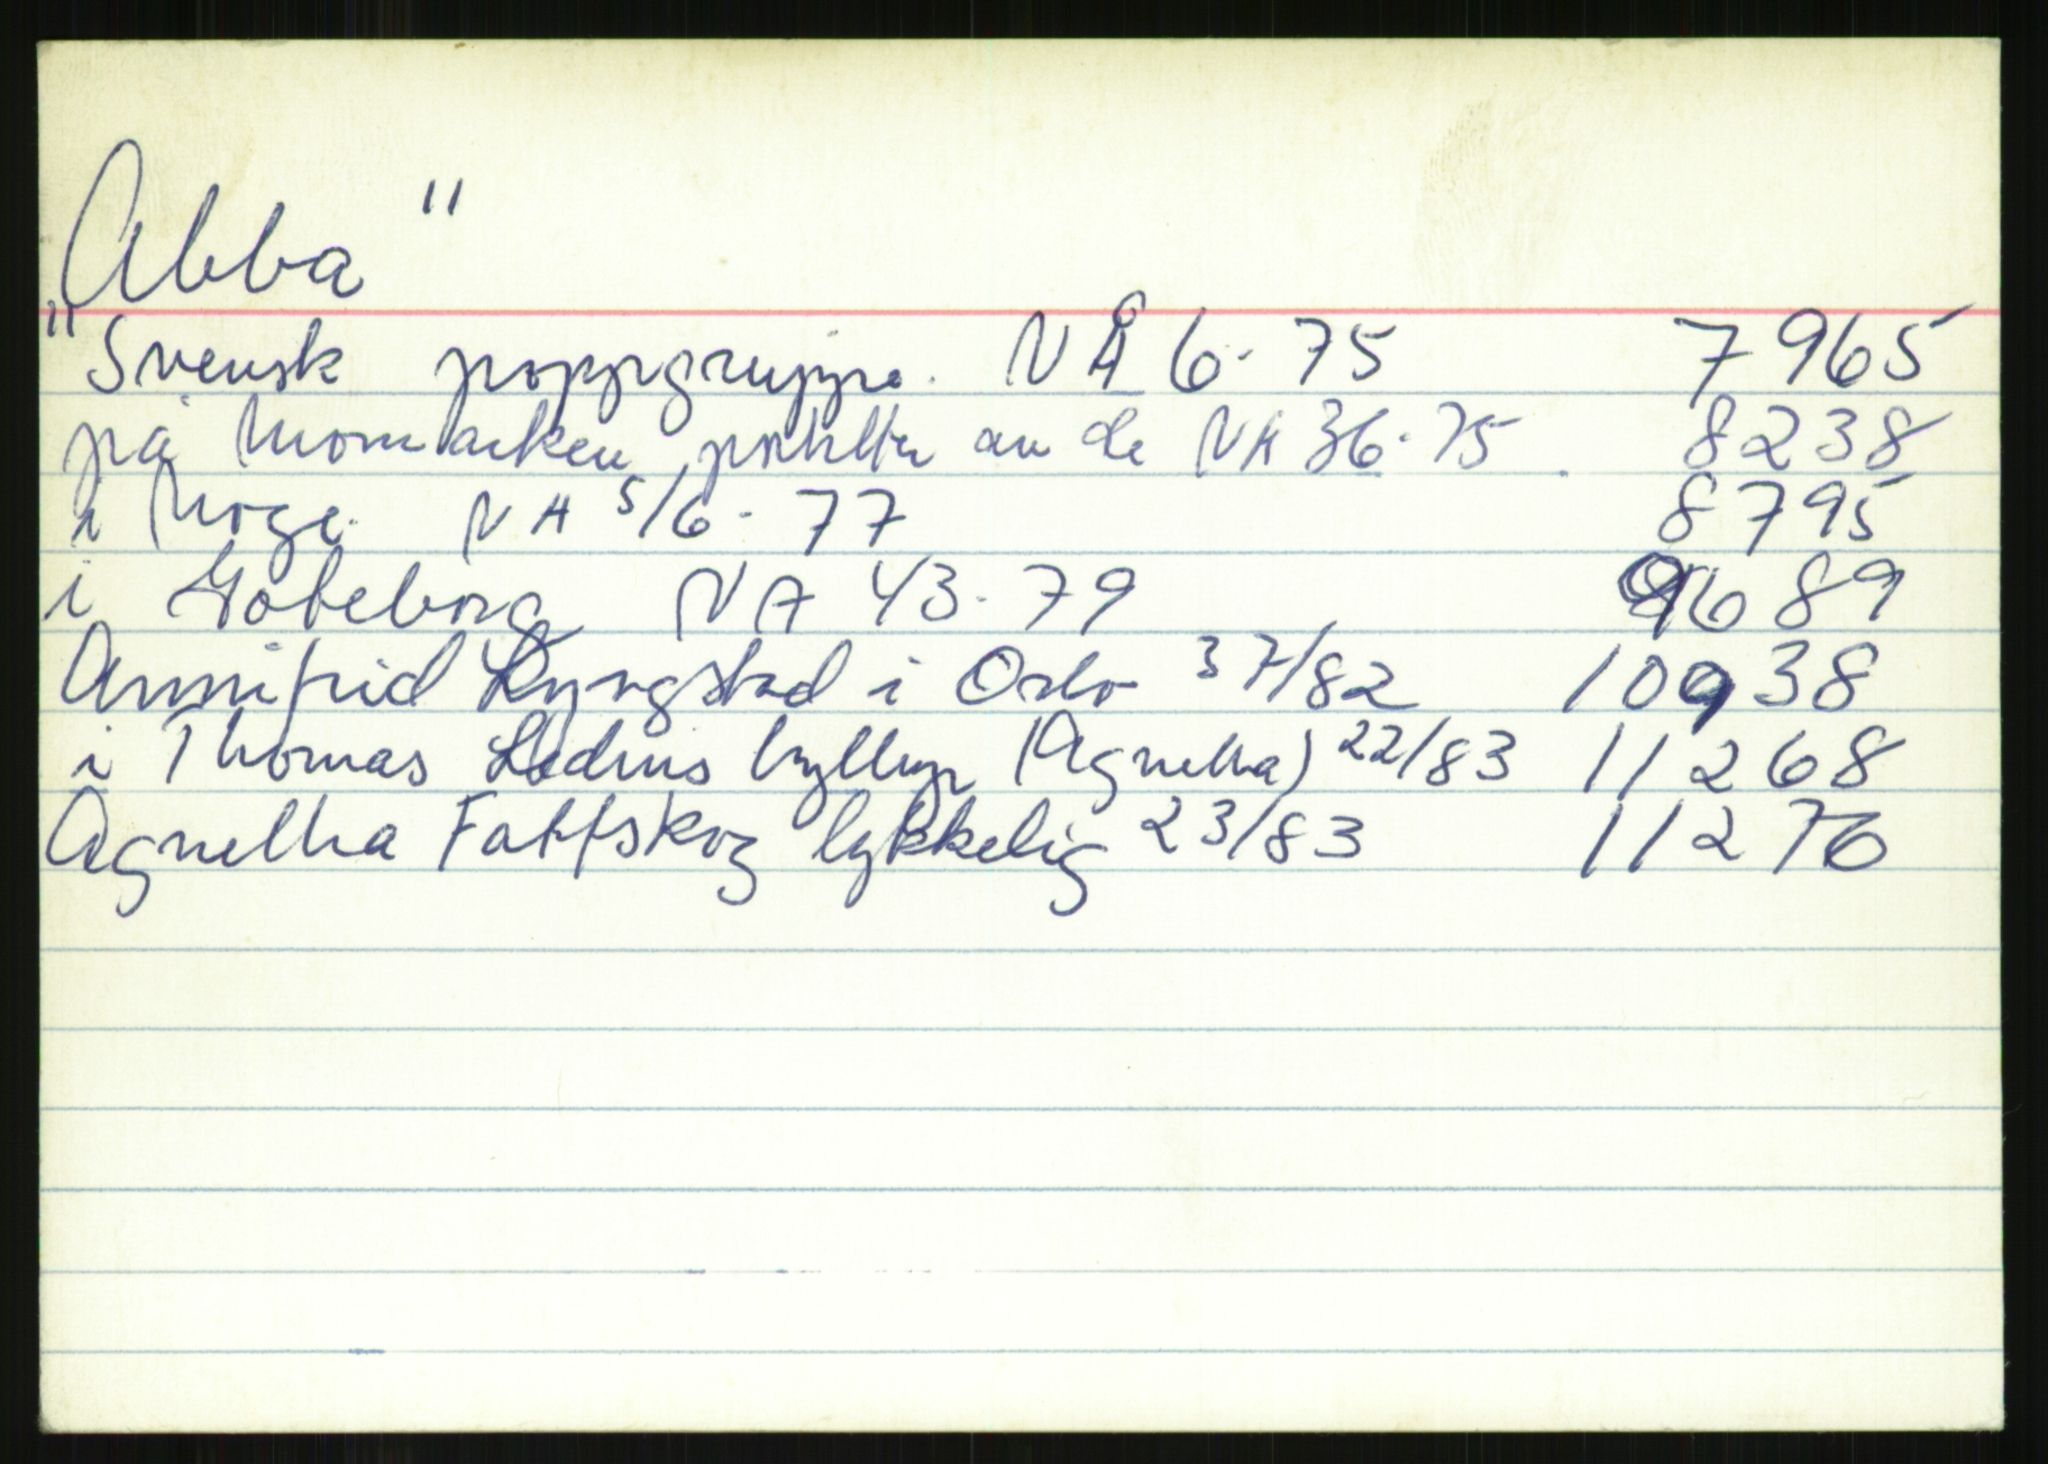 „Abba"
Svensk popgruppe. NÅ 6-75 7965
på Momarken NÅ 36-75 8238
i Norge. NA 5/6-77 8795
i Gøteborg NA 43-79 9689
Annifrid Lyngstad i Oslo 37/82 10938
i Thomas Ledins bryllup (Agnetha) 22/83 11268
Agnetha Fattskog lykkelig 23/83 11276